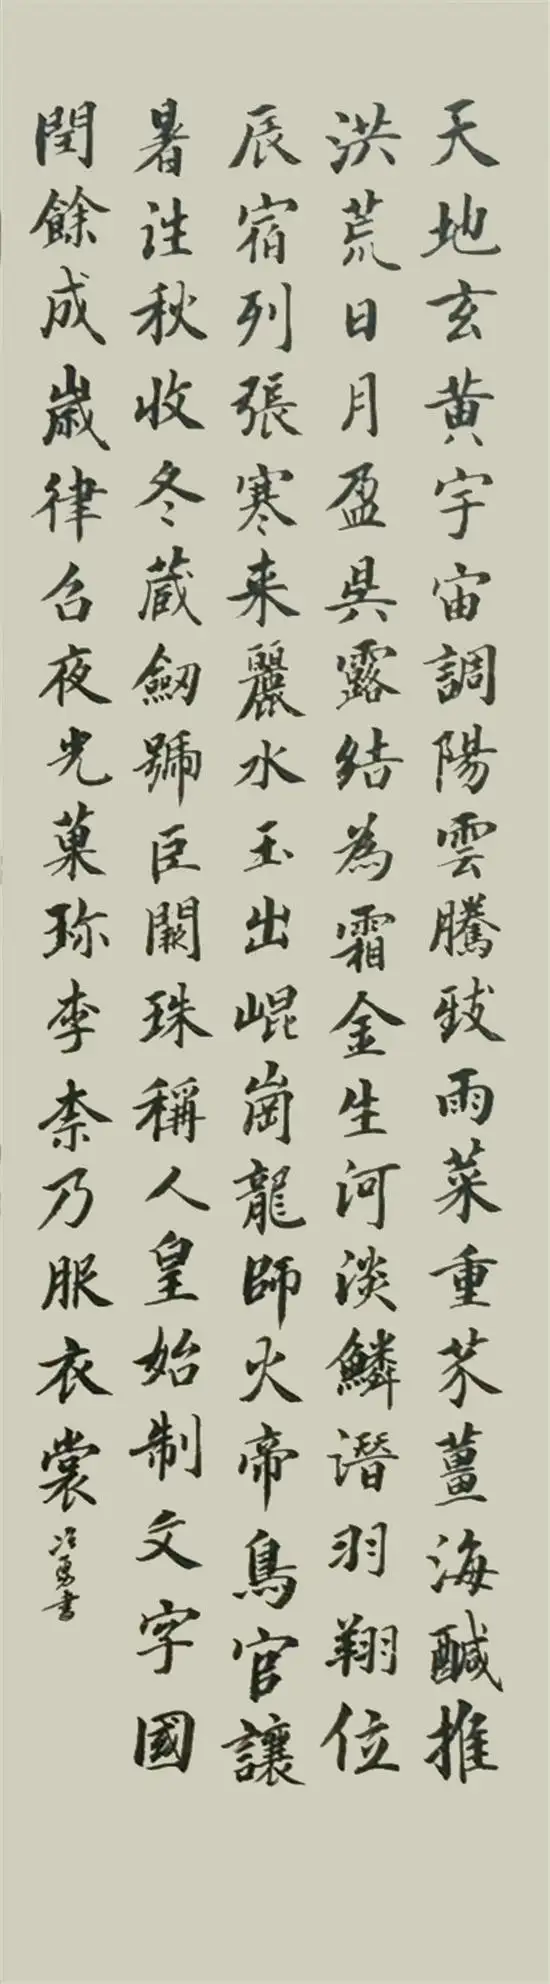 天地玄黄宇宙調陽雲騰致雨菜重芥薑海醎推
洪荒日月盈昃露結為霜金生河淡鱗潛羽翔位
辰宿列張寒来麗水玉出崐崗龍師火帝鳥官讓
暑往秋收冬蔵劒號臣闕珠稱人皇始制文字國
閏餘成歲律召夜光菓珍李柰乃服衣裳
書